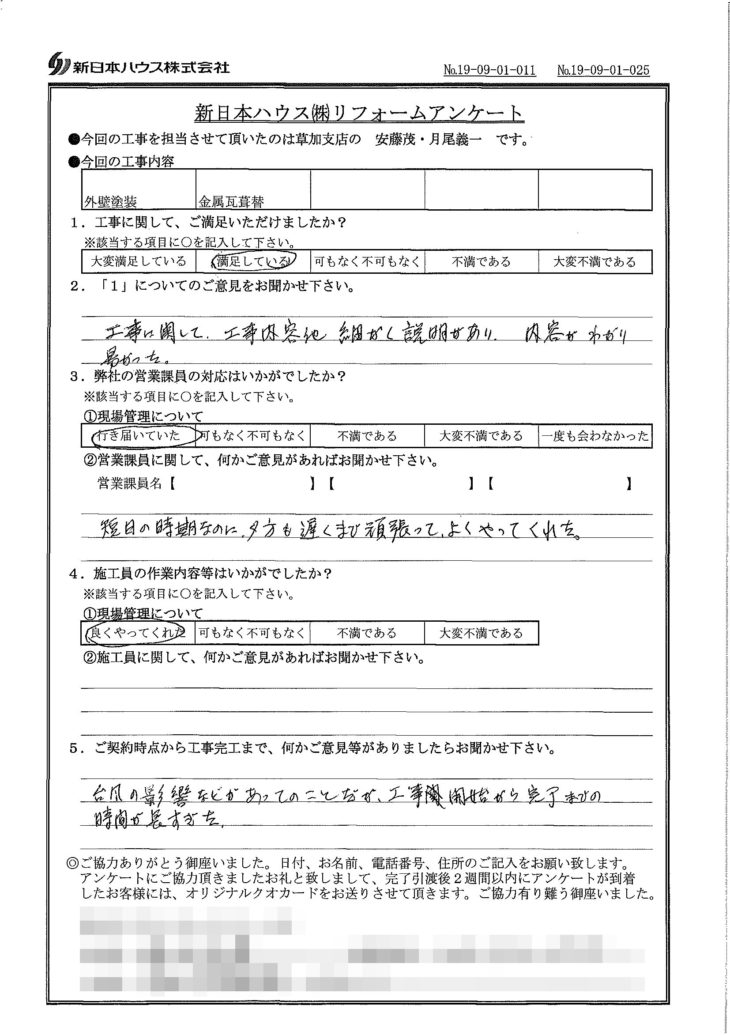 新日本ハウス株式会社
No.19-09-01-011 No.19-09-01-025
新日本ハウス㈱リフォームアンケート
●今回の工事を担当させて頂いたのは草加支店の 安藤茂・月尾義一 です。
●今回の工事内容
外壁塗装 金属瓦葺替
1．工事に関して、ご満足いただけましたか？
※該当する項目に○を記入して下さい。
大変満足している 満足している 可もなく不可もなく 不満である 大変不満である
2．「1」についてのご意見をお聞かせ下さい。
工事に関して、工事内容他 細かく説明があり、 内容がわかり
易かった。
3．弊社の営業課員の対応はいかがでしたか？
※該当する項目に○を記入して下さい。
①現場管理について
行き届いていた 可もなく不可もなく 不満である 大変不満である 一度も会わなかった
②営業課員に関して、何かご意見があればお聞かせ下さい。
営業課員名【 】【 】【 】
短日の時期なのに、夕方も遅くまで頑張って、よくやってくれた。
4．施工員の作業内容等はいかがでしたか？
※該当する項目に○を記入して下さい。
①現場管理について
良くやってくれた 可もなく不可もなく 不満である 大変不満である
②施工員に関して、何かご意見があればお聞かせ下さい。
5．ご契約時点から工事完工まで、何かご意見等がありましたらお聞かせ下さい。
台風の影響などがあってのことだが、工事開始から完了までの
時間が長すぎた。
◎ご協力ありがとう御座いました。日付、お名前、電話番号、住所のご記入をお願い致します。
アンケートにご協力頂きましたお礼と致しまして、完了引渡後2週間以内にアンケートが到着
したお客様には、オリジナルクオカードをお送りさせて頂きます。ご協力有り難う御座いました。